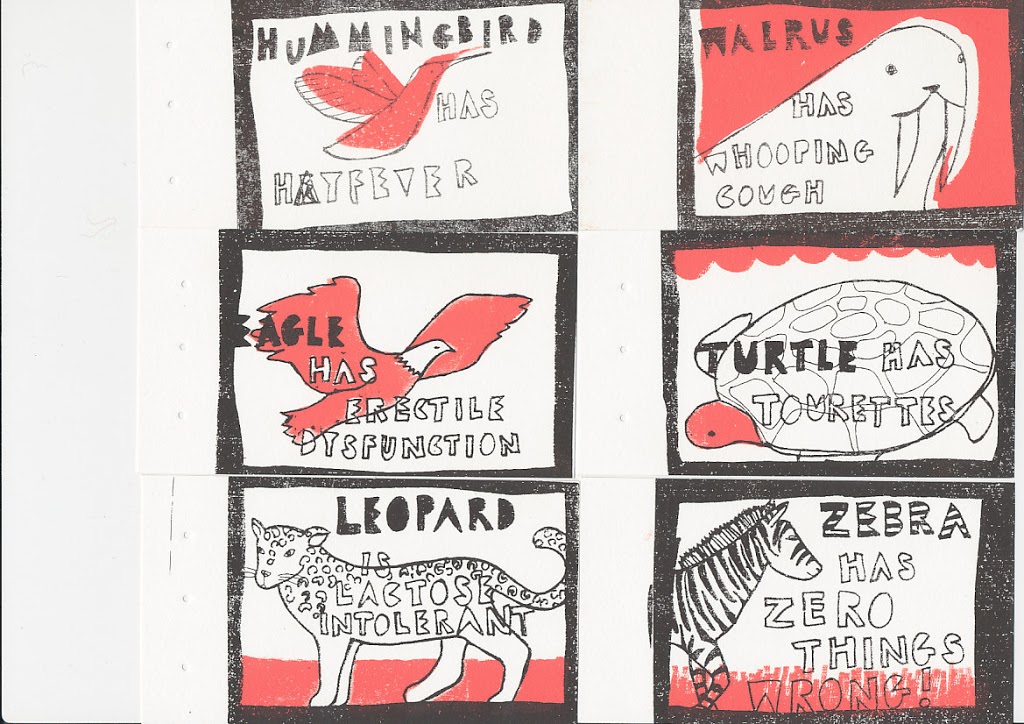 HUMMINGBIRD
HAS
HAYFEVER
WALRUS
HAS
WHOOPING
COUGH
EAGLE
HAS
ERECTILE
DYSFUNCTION
TURTLE HAS
TOURETTES
LEOPARD
IS
LACTOSE
INTOLERANT
ZEBRA
HAS
ZERO
THINGS
WRONG!